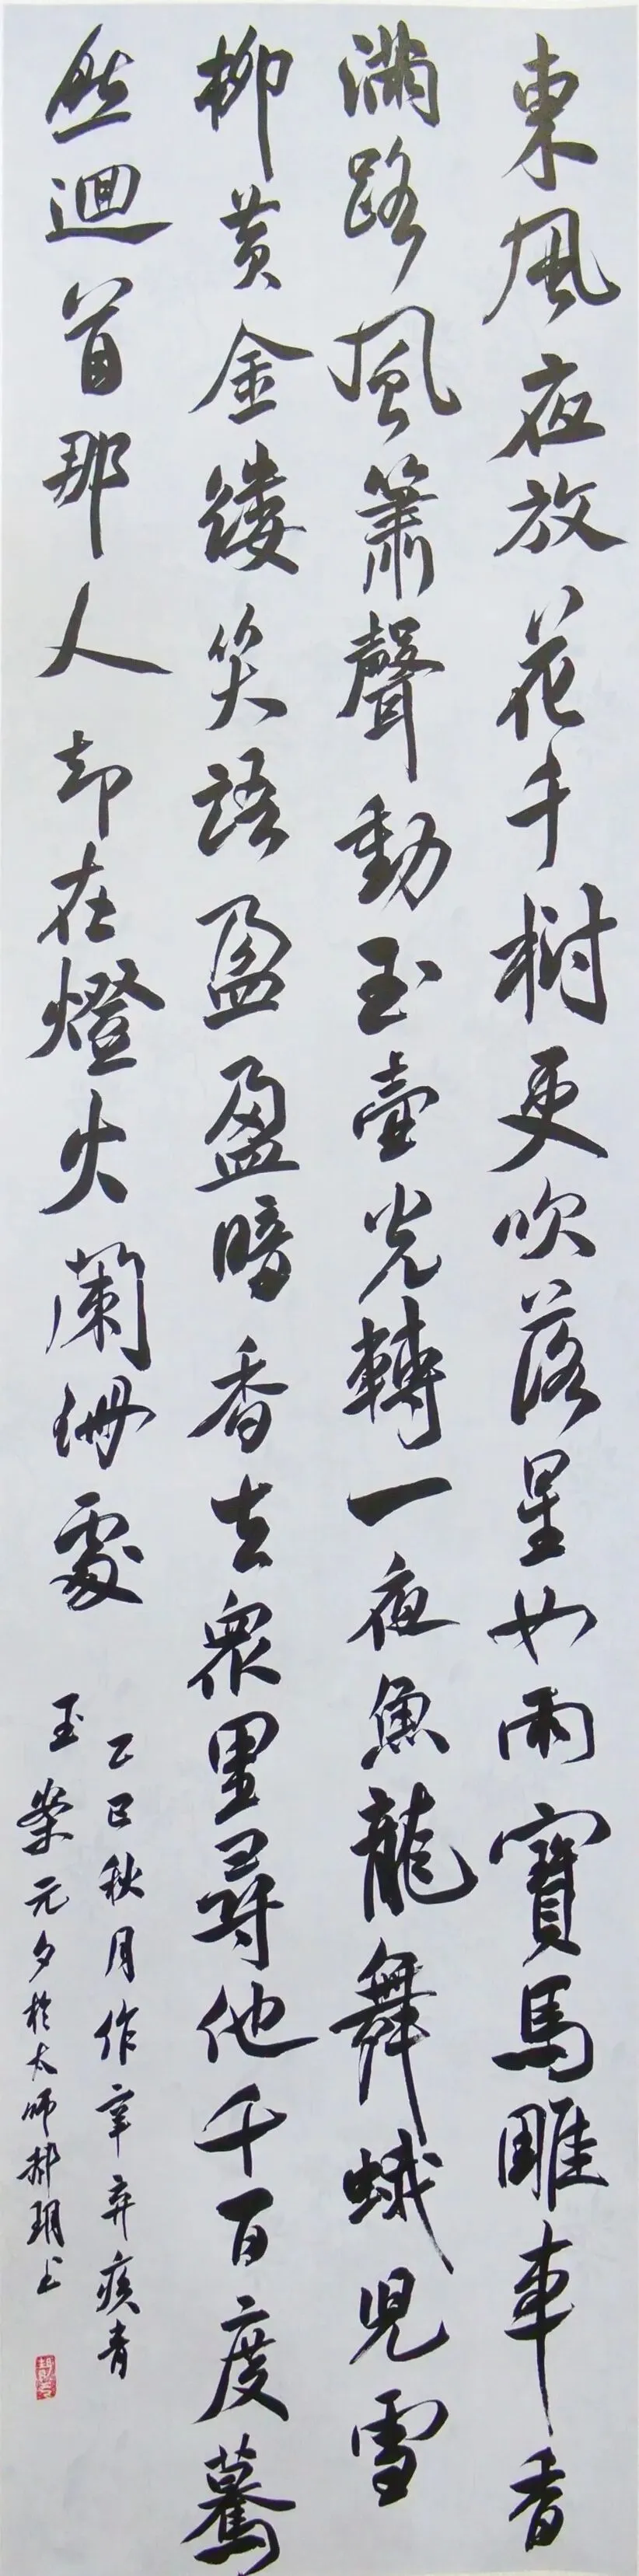 東風夜放花千樹更吹落星如雨寶馬雕車香
滿路風簫聲動玉壺光轉一夜魚龍舞蛾兒雪
柳黃金縷笑語盈盈暗香去眾里尋他千百度驀
然迴首那人却在燈火闌珊處
乙巳秋月作辛弃疾青
玉案元夕於太師郝玥書